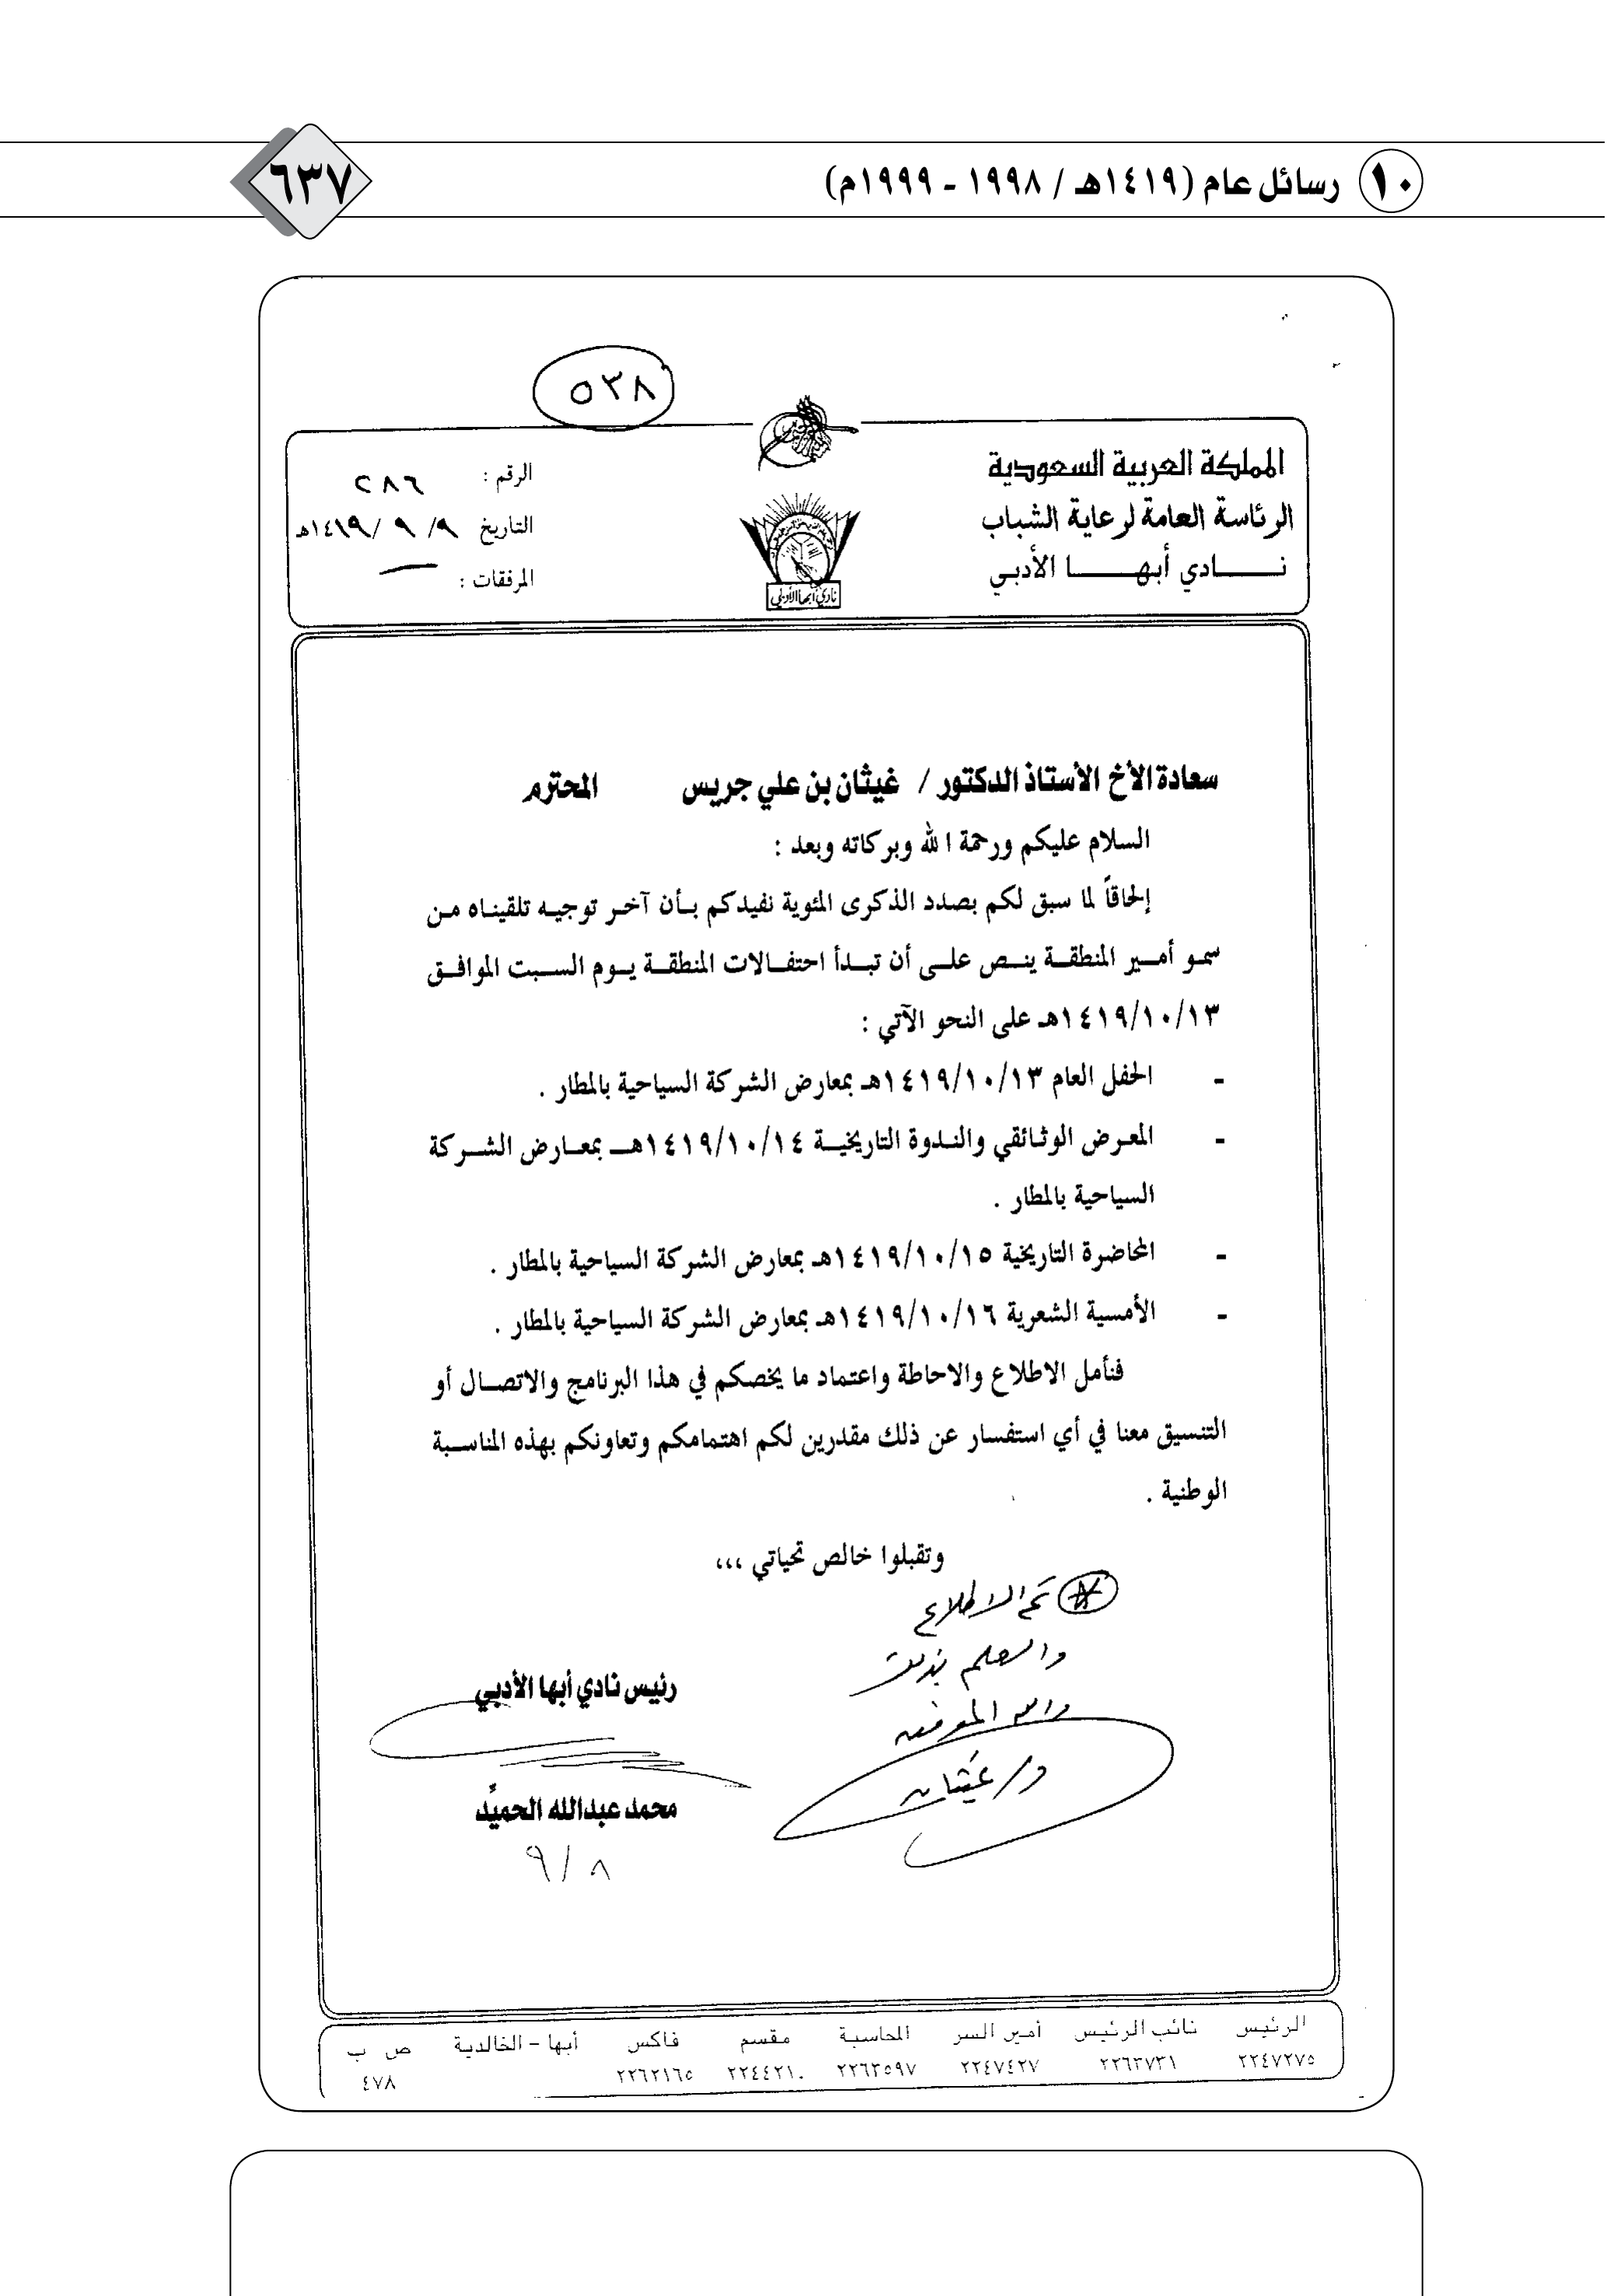 ١٠ رسائل عام (١٤١٩هـ / ١٩٩٨ - ١٩٩٩م)
٦٣٧
٥٣٨
المملكة العربية السعودية
الرئاسة العامة لرعاية الشباب
نادي أبها الأدبي
نادي أبها الأدبي
الرقم : ٢٨٦
التاريخ ٩/ ٩ /١٤١٩هـ
المرفقات : —
سعادة الأخ الأستاذ الدكتور / غيثان بن علي جريس المحترم
السلام عليكم ورحمة الله وبركاته وبعد :
إلحاقاً لما سبق لكم بصدد الذكرى المئوية نفيدكم بأن آخر توجيه تلقيناه من
سمو أمير المنطقة ينص على أن تبدأ احتفالات المنطقة يوم السبت الموافق
١٤١٩/١٠/١٣هـ على النحو الآتي :
- الحفل العام ١٤١٩/١٠/١٣هـ بمعارض الشركة السياحية بالمطار .
- المعرض الوثائقي والندوة التاريخية ١٤١٩/١٠/١٤هـ بمعارض الشركة
السياحية بالمطار .
- المحاضرة التاريخية ١٤١٩/١٠/١٥هـ بمعارض الشركة السياحية بالمطار .
- الأمسية الشعرية ١٤١٩/١٠/١٦هـ بمعارض الشركة السياحية بالمطار .
فنأمل الاطلاع والاحاطة واعتماد ما يخصكم في هذا البرنامج والاتصال أو
التنسيق معنا في أي استفسار عن ذلك مقدرين لكم اهتمامكم وتعاونكم بهذه المناسبة
الوطنية .
وتقبلوا خالص تحياتي ،،،
تم الاطلاع
والعلم بذلك
والله الموفق
د/ غيثان
رئيس نادي أبها الأدبي
محمد عبدالله الحميِّد
٩/٨
الرئيس نائب الرئيس أمين السر المحاسبة مقسم فاكس أبها - الخالدية ص ب
٢٢٤٧٢٧٥ ٢٢٦٣٧٣١ ٢٢٤٧٤٢٧ ٢٢٦٣٥٩٧ ٢٢٤٤٢١٠ ٢٢٦٢١٦٥ ٤٧٨